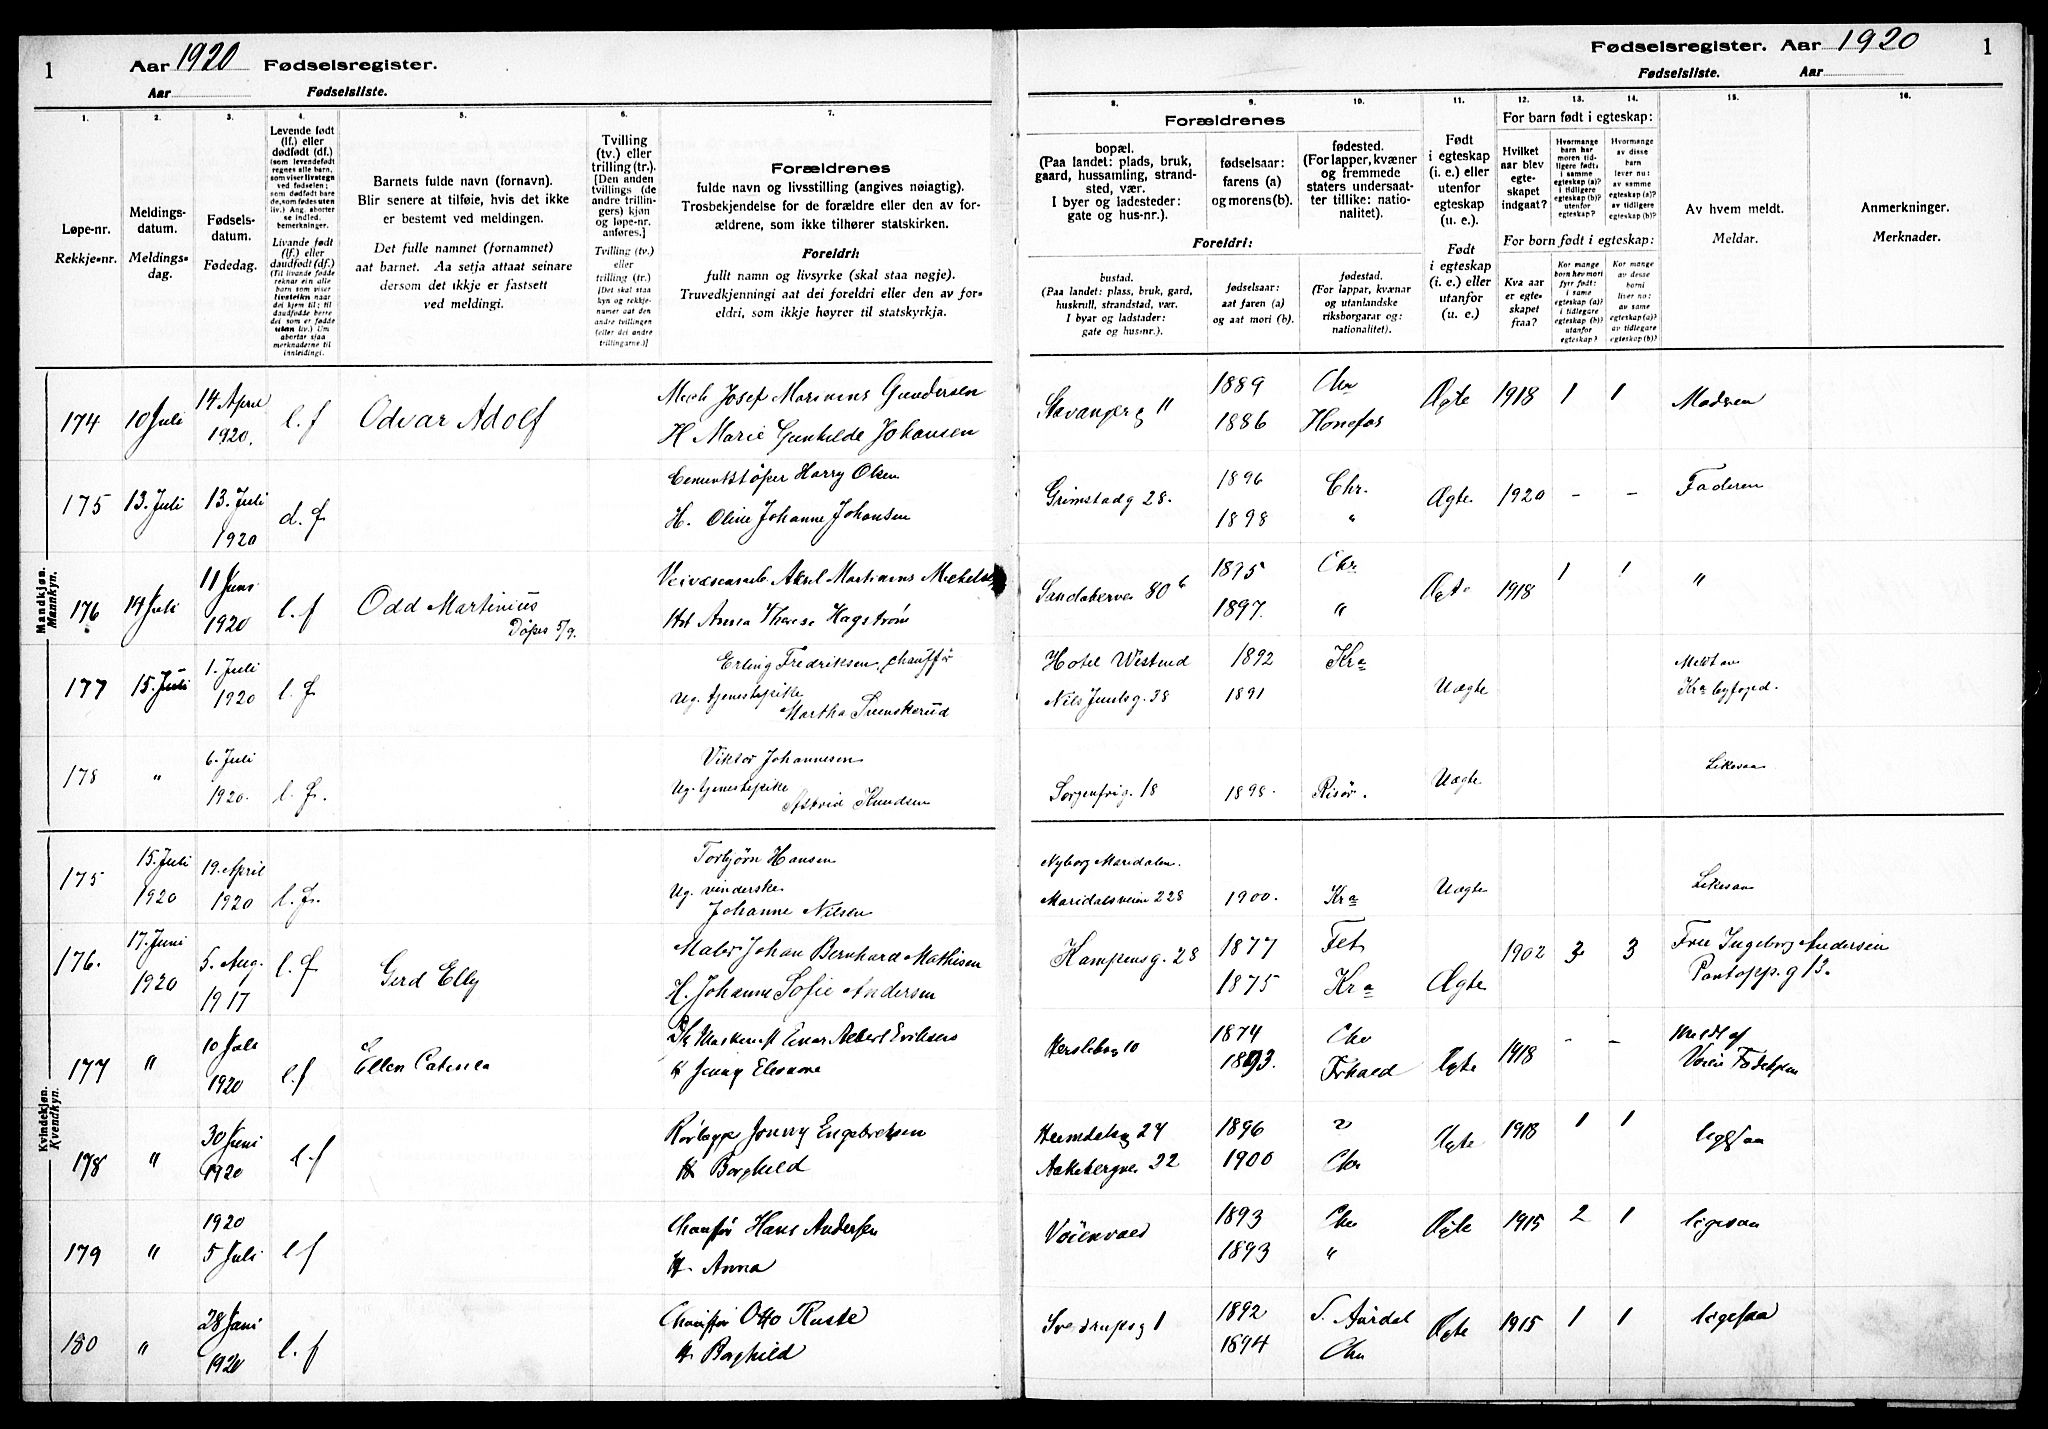 1
Aar 1920 Fødselsregister.
Aar Fødselsliste.
Fødselsregister. Aar 1920
Fødselsliste. Aar
1
1. 2. 3. 4. 5. 6. 7.
Løpe-nr.
Rekkje-nr.
Meldings-
datum.
Meldings-
dag.
Fødsels-
datum.
Fødedag.
Levende født
(lf.) eller
dødfødt (df.)
Livande født
(lf.) eller
daudfødt (df.)
Barnets fulde navn (fornavn).
Blir senere at tilføie, hvis det ikke
er bestemt ved meldingen.
Det fulle namnet (fornamnet)
aat barnet. Aa setja attaat seinare
dersom det ikkje er fastsett
ved meldingi.
Tvilling
(tv.) eller
trilling (tr.).
[Den anden
tvillings (de
andre trillin-
gers) kjøn
og løpe-nr.
anføres.]
Tvilling (tv.)
eller
trilling (tr.)
[Det skal staa
kyn og rekkje-
numer aat den
andre tvillingen
(eller dei andre
trillingarne.)]
Forældrenes
fulde navn og livsstilling (angives nøiagtig).
Trosbekjendelse for de forældre eller den av for-
ældrene, som ikke tilhører statskirken.
Foreldri:
fullt namn og livsyrke (skal staa nøgje).
Truvedkjenningi aat dei foreldri eller den av for-
eldri, som ikkje høyrer til statskyrkja.
8. 9. 10. 11. 12. 13. 14. 15. 16.
Forældrenes
bopæl.
(Paa landet: plads, bruk,
gaard, hussamling, strand-
sted, vær.
I byer og ladesteder:
gate og hus-nr.).
fødselsaar:
farens (a)
og morens (b).
fødested.
(For lapper, kvæner
og fremmede
staters undersaat-
ter tillike: natio-
nalitet).
Foreldri:
bustad.
(Paa landet: plass, bruk, gard,
huskrull, strandstad, vær.
I byar og ladstader:
gate og hus-nr.).
fødselsaar:
aat faren (a)
og aat mori (b).
fødestad.
(For lappar, kvænar
og utanlandske
riksborgarar og:
nationalitet).
Født
i egteskap
(i. e.) eller
utenfor
egteskap
(u. e.).
Født
i egteskap
(i. e.) eller
utanfor
(u. e.)
For barn født i egteskap:
Hvilket
aar blev
egte-
skapet
indgaat?
For born født i egteskap:
Kva aar
er egte-
skapet
fraa?
Av hvem meldt.
Meldar.
Anmerkninger.
Merknader.
Mandkjøn.
Mannkyn.
174 10 Juli 14 April 1920. l.f Odvar Adolf
Mek Josef Marinius Gundersen
H Marie Gunhilde Johansen
Stavangerg 11 1889 Chr Ægte 1918 1 1 Modren
1886 Hønefos
175 13. Juli 13. Juli 1920 d.f.
Cementstøper Harry Olsen
H. Oline Johanne Johansen
Grimstadg 28. 1896 Chr. Ægte 1920 - - Faderen
1898 "
176 14 Juli 11 Juni 1920 l.f Odd Martinius
Døpes 5/9.
Veivæsenarb. Aksel Martinius
Hst Anna Therese Hagstrøm
Sandakerve 80 b 1895 Chr Ægte 1918 1 1 "
1897. "
177 15. Juli 1. Juli 1920 l.f.
Erling Fredriksen, chauffør
Ug. tjenestepike
Martha
Hotel Westend 1892 Kra
Nils Juulsg. 38 1891 Uægte
Meldt av
Kra
178 " 6. Juli 1920. l.f.
Viktor Johannesen
Ug. tjenestepike
Astrid Knudsen
Sorgenfrig. 18 1898. Risør. Uægte Likesaa
Kvindekjøn.
Kvendkyn.
175 15. Juli 1920 19. April 1920 l.f.
Torbjørn Hansen
Ug. vinderske
Johanne Nilsen
Nyborg Maridalen.
Maridalsveien 228 1900. Kra Uægte Likesaa
176. 17. Juni 1920 5. Aug. 1917 l.f. Gerd Elly
Maler Johan Bernhard Mathisen
H. Johanne Sofie Andersen
Kampensg. 28 1877 Fet 1902 3 3 Fru Ingeborg Andersen
1875 Kra Ægte Pontopp.g 13.
177 " 10 Juli 1920 l.f Ellen
Einar Albert Eriksen
H Jenny Eleonore
Herslebsg 10 1874 Chr Ægte 1918 - - Meldt af
1893. Frhald
178 " 30 Juni 1920 l.f
Rørlægger Jonny Engebretsen
H Borghild
Heimdalsg 24 1896 " Ægte 1918 1 1 ligesaa
Aakebergve 32 1900 Chr
179 " 1920 5 Juli l.f
Chauffør Hans Andersen
H. Anna
Voienvold 1893 Chr Ægte 1915 2 1 ligesaa
1893 "
180 " 28 Juni 1920 l.f
Chauffør Otto Ruste
H. Borghild
Sverdrupsg 1 1892 S. Aurdal Ægte 1915 1 1 ligesaa
1894 Chr